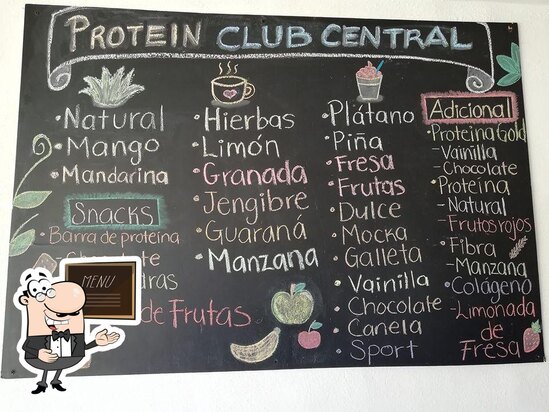 PROTEIN CLUB CENTRAL
·Natural
·Mango
·Mandarina
Snacks
·Barra de proteina
de Frutas
MENU
·Hierbas
·Limón
·Granada
·Jengibre
·Guaraná
·Manzana
·Plátano
·Piña
·Fresa
·Frutas
·Dulce
·Mocka
·Galleta
·Vainilla
·Chocolate
·Canela
·Sport
Adicional
·Proteina Gold
-Vainilla
-Chocolate
·Proteina
-Natural
-Frutos rojos
·Fibra
-Manzana
·Colágeno
-Limonada
de
Fresa